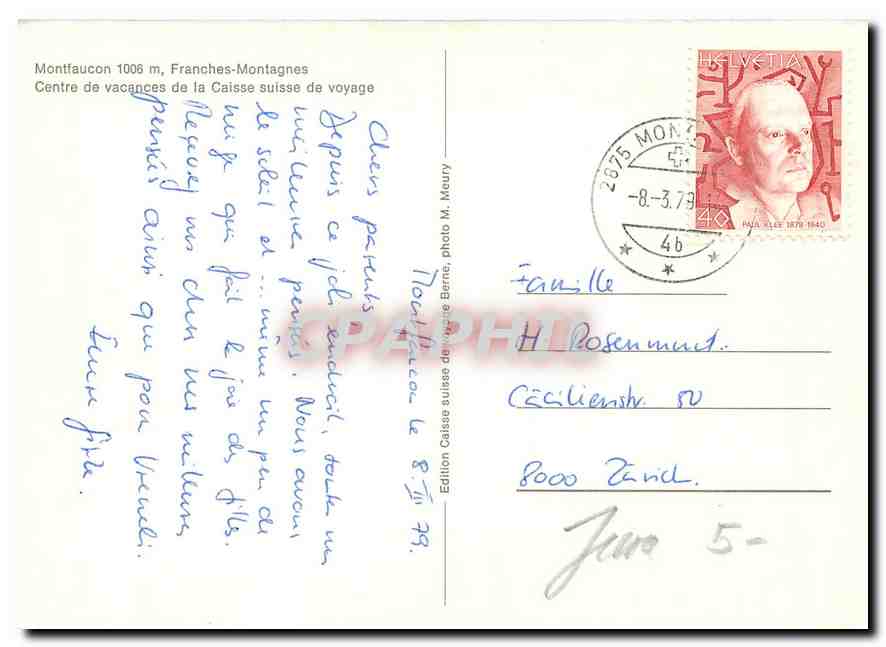 Montfaucon 1006 m, Franches-Montagnes
Centre de vacances de la Caisse suisse de voyage
Montfaucon le 8. III 79.
Chers parents
Depuis ce joli endroit, toutes nos
meilleures pensées. Nous avons
le soleil et ... même un peu de
neige qui fait la joie des filles.
Recevez nos chers nos meilleures
pensées ainsi que pour Vreneli.
Edition Caisse suisse de voyage Berne, photo M. Meury
HELVETIA
40
PAUL KLEE 1879-1940
2875 MON
-8.-3.79
4b
Famille
H. Rosenmund.
Cäcilienstr. 50
8000 Zürich.
Jura 5-
CPAPHIL